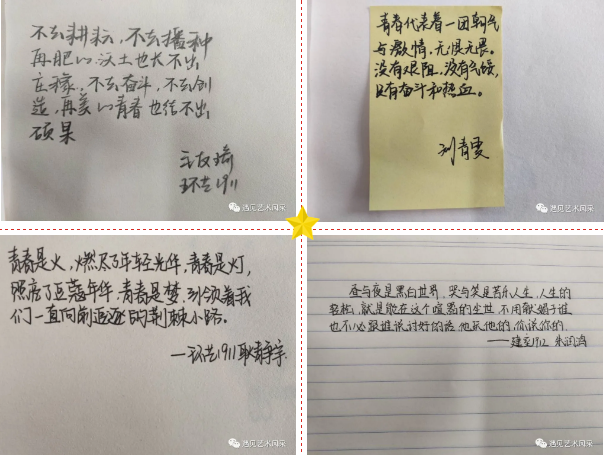 不去耕耘，不去播种
再肥的沃土也长不出
庄稼，不去奋斗，不去创
造，再美的青春也结不出
硕果
环艺1911
遇见艺术风采
青春代表着一团朝气
与激情，无惧无畏。
没有艰阻，没有气馁，
只有奋斗和热血。
刘青雯
遇见艺术风采
青春是火，燃尽了年轻光华，青春是灯，
照亮了豆蔻年华，青春是梦，引领着我
们一直向前追逐的荆棘小路。
—环艺1911 耿静宗
遇见艺术风采
昼与夜是黑白世界，哭与笑是苦乐人生，人生的
轻松，就是能在这个喧嚣的尘世，不用献媚于谁，
也不必跟谁说讨好的话，他玩他的，你说你的，
——建室1912 朱润鸿
遇见艺术风采